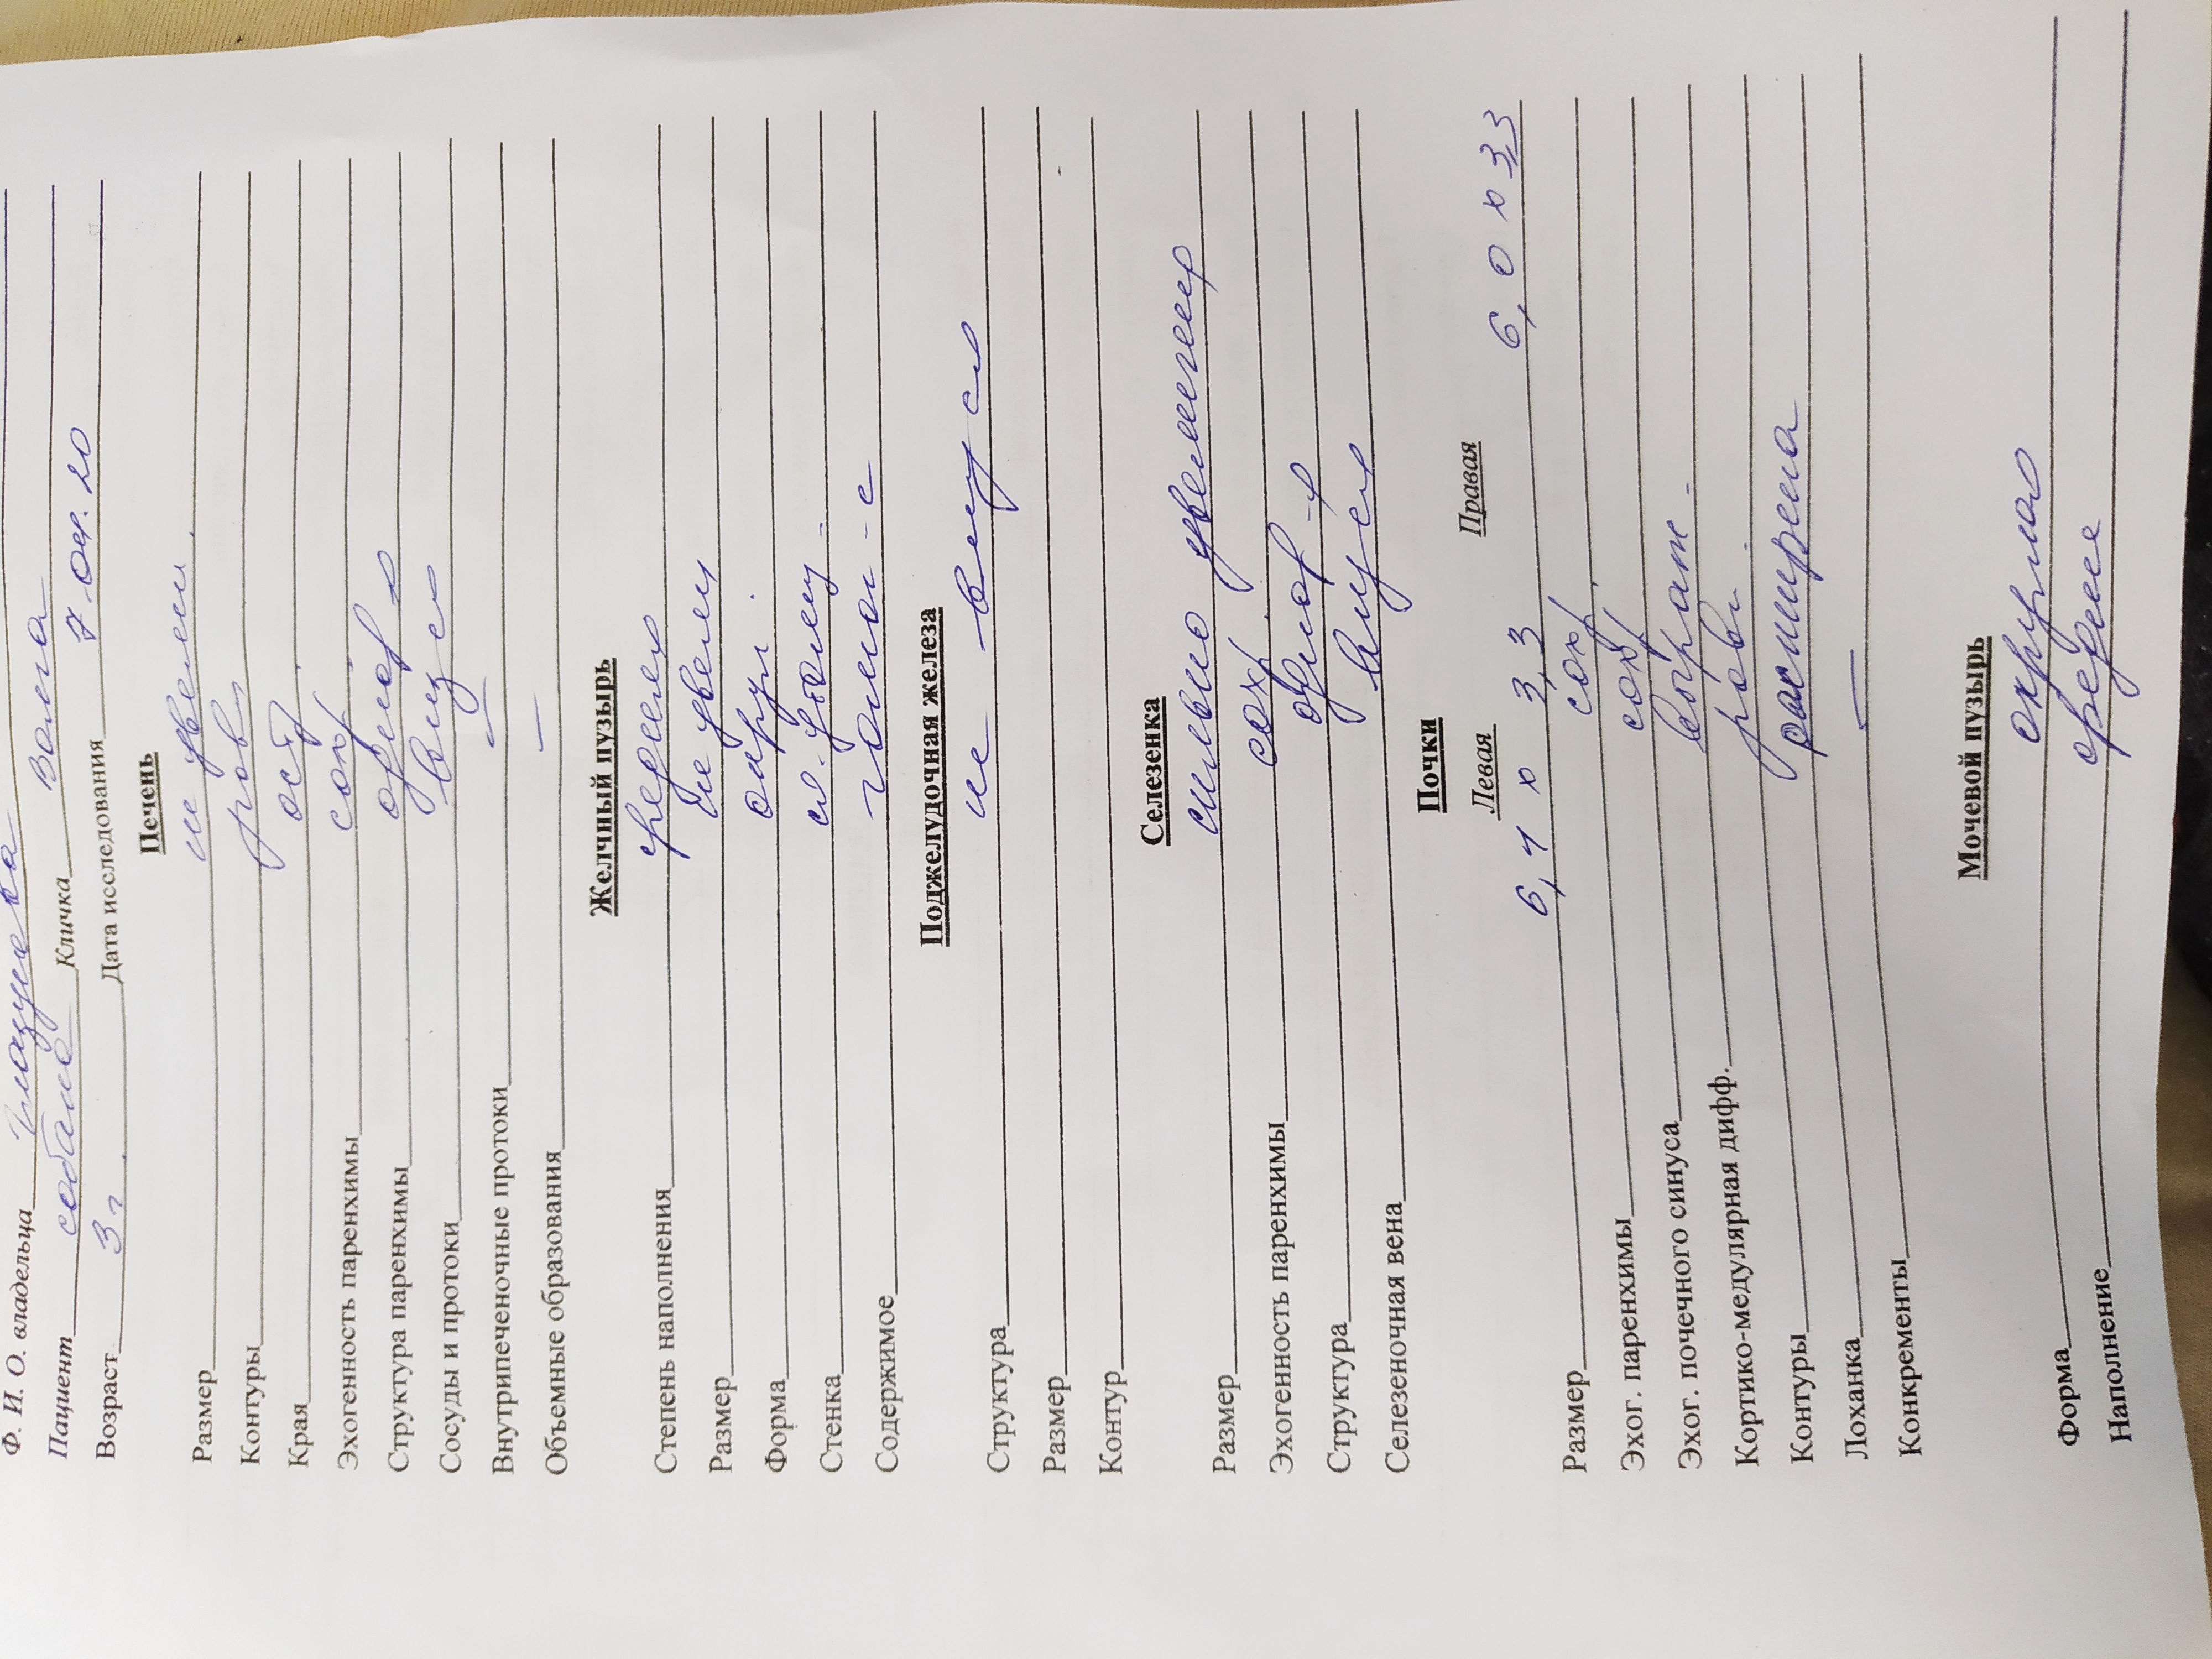 Ф. И. О. владельца
Пациент собака Кличка Волга
Возраст 3 г. Дата исследования 7.04.20
Печень
Размер не увелич.
Контуры ровн
Края остр.
Эхогенность паренхимы сохр.
Структура паренхимы однор
Сосуды и протоки
Внутрипеченочные протоки —
Объемные образования —
Желчный пузырь
Степень наполнения средняя
Размер не увелич
Форма округл.
Стенка не утолщ.
Содержимое гомог-е
Поджелудочная железа
Структура не
Размер
Контур
Селезенка
Размер сильно увеличена
Эхогенность паренхимы сохр.
Структура однор-я
Селезеночная вена
Почки
Левая Правая
Размер 6,4 х 3,3 6,0 х 3,3
Эхог. паренхимы сохр.
Эхог. почечного синуса сохр
Кортико-медулярная дифф. выраж-
Контуры ровн.
Лоханка расширена
Конкременты —
Мочевой пузырь
Форма округлая
Наполнение среднее